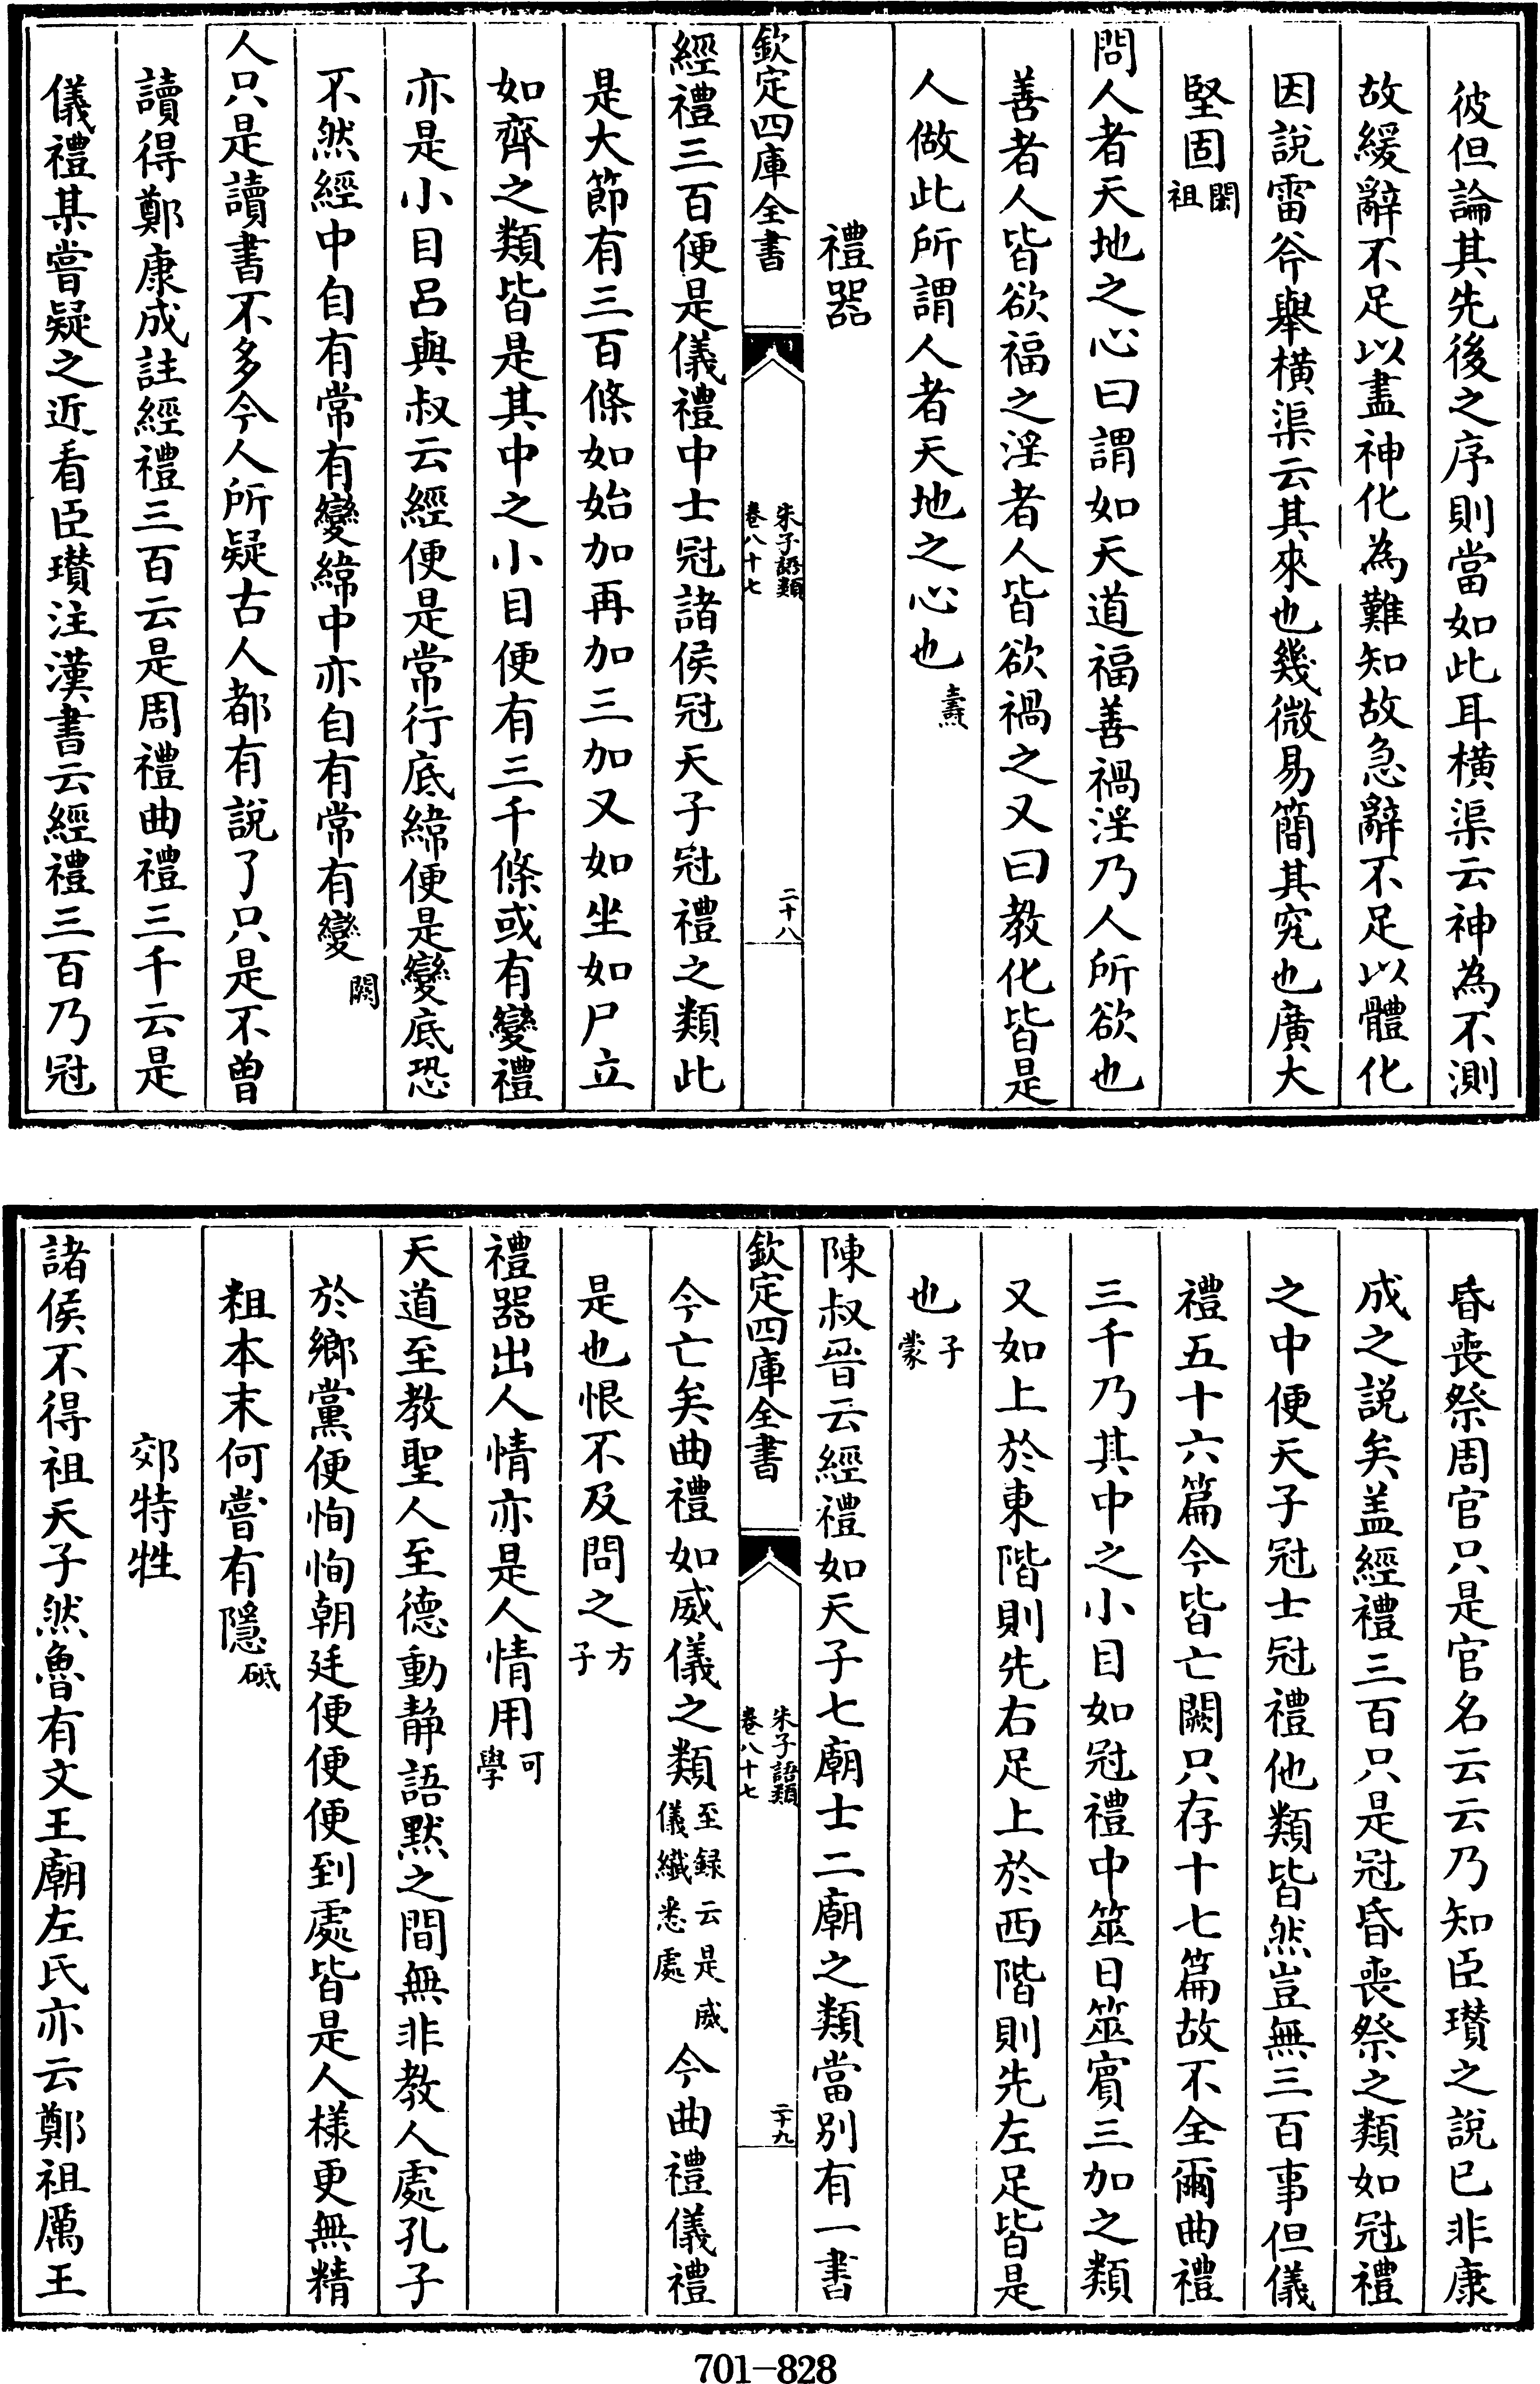 彼但論其先後之序則當如此耳橫渠云神為不測
故緩辭不足以盡神化為難知故急辭不足以體化
因說雷斧舉橫渠云其來也幾微易簡其究也廣大
堅固閎祖
問人者天地之心曰謂如天道福善禍淫乃人所欲也
善者人皆欲福之淫者人皆欲禍之又曰教化皆是
人做此所謂人者天地之心也燾
禮器
欽定四庫全書
朱子語類
卷八十七
二十八
經禮三百便是儀禮中士冠諸侯冠天子冠禮之類此
是大節有三百條如始加再加三加又如坐如尸立
如齊之類皆是其中之小目便有三千條或有變禮
亦是小目呂與叔云經便是常行底緯便是變底恐
不然經中自有常有變緯中亦自有常有變闕
人只是讀書不多今人所疑古人都有說了只是不曾
讀得鄭康成註經禮三百云是周禮曲禮三千云是
儀禮某嘗疑之近看臣瓚注漢書云經禮三百乃冠
昏喪祭周官只是官名云云乃知臣瓚之說已非康
成之說矣盖經禮三百只是冠昏喪祭之類如冠禮
之中便天子冠士冠禮他類皆然豈無三百事但儀
禮五十六篇今皆亡闕只存十七篇故不全爾曲禮
三千乃其中之小目如冠禮中筮日筮賓三加之類
又如上於東階則先右足上於西階則先左足皆是
也子蒙
陳叔晉云經禮如天子七廟士二廟之類當別有一書
欽定四庫全書
朱子語類
卷八十七
二十九
今亡矣曲禮如威儀之類至録云是威儀纎悉處今曲禮儀禮
是也恨不及問之方子
禮器出人情亦是人情用可學
天道至教聖人至德動靜語默之間無非教人處孔子
於鄉黨便恂恂朝廷便便便到處皆是人樣更無精
粗本末何嘗有隱砥
郊特牲
諸侯不得祖天子然魯有文王廟左氏亦云鄭祖厲王
701-828